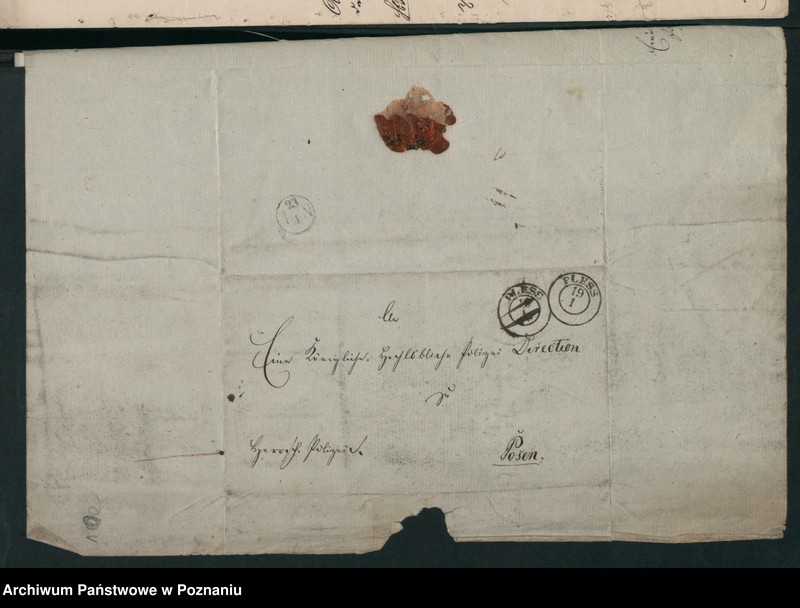 23
1
PLESS
19
1
PLESS
19
1
An
Eine Königliche Hochlöbliche Polizei Direction
zu
Herrsch. Polizeis.
Posen.
Archiwum Państwowe w Poznaniu